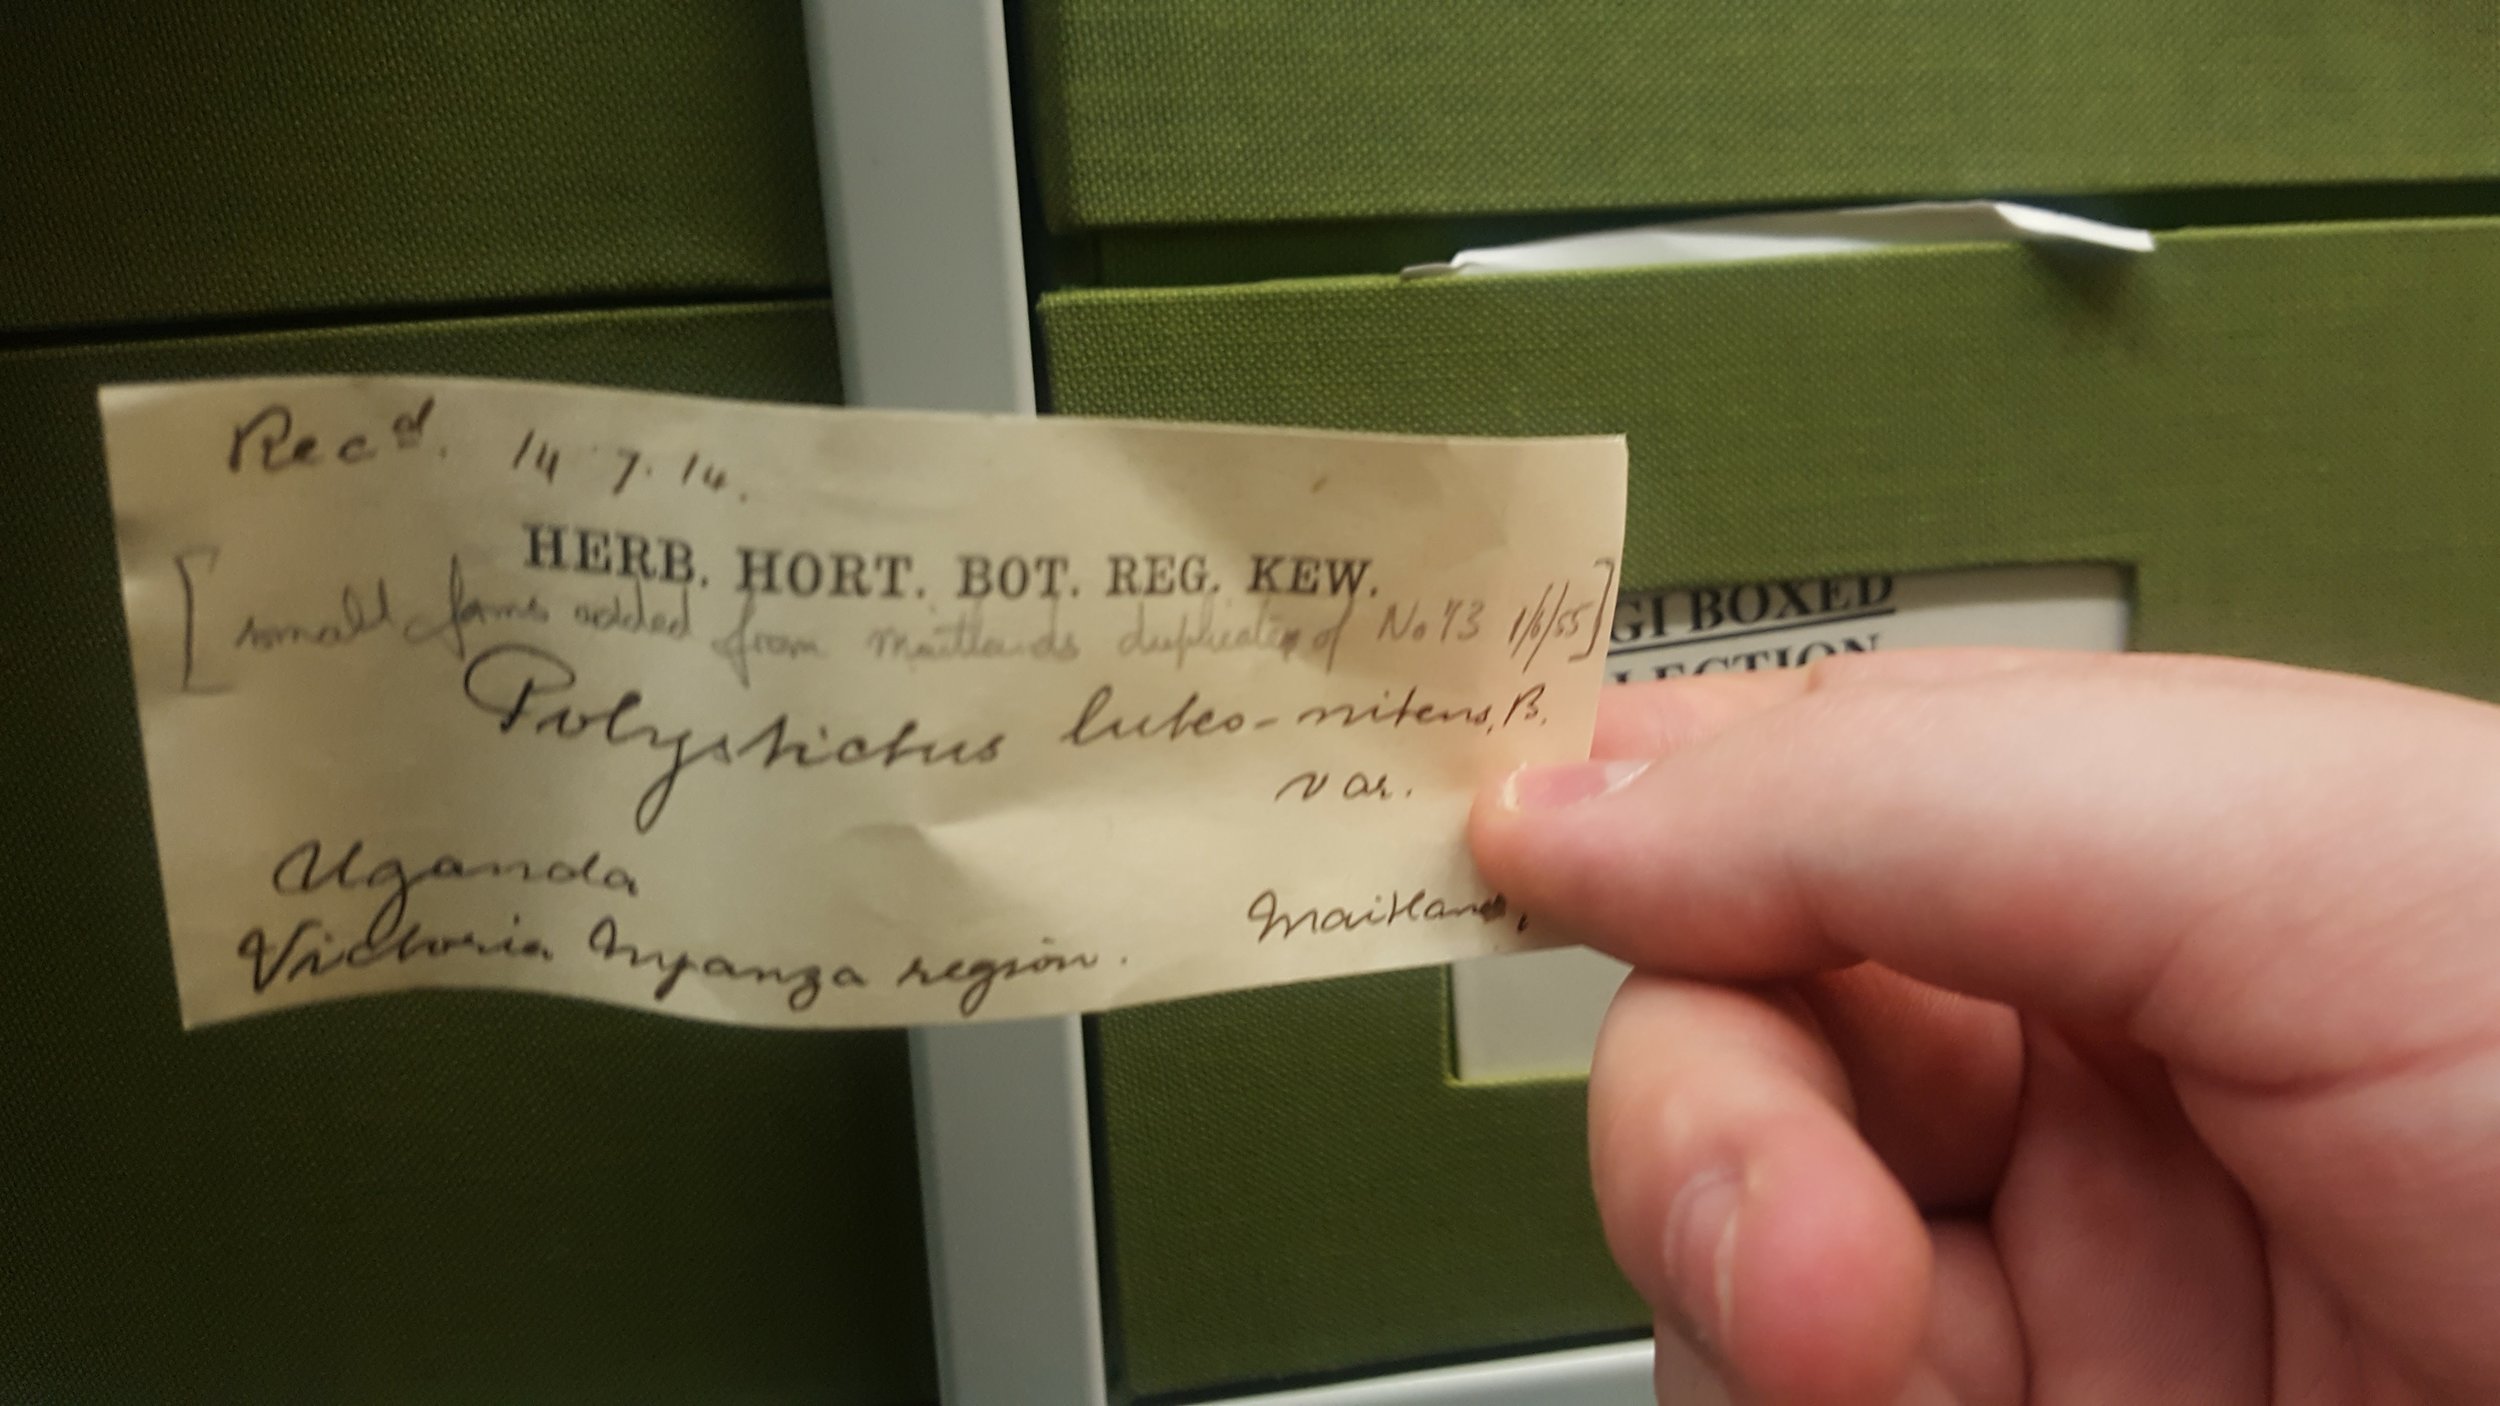 Recd. 14 7. 14.
HERB. HORT. BOT. REG. KEW.
[small forms added from Maitlands duplicate of No 73 1/6/55]
Polystictus luteo-nitens, B.
var.
Uganda
Maitland,
Victoria Nyanza region.
GI BOXED
LECTION